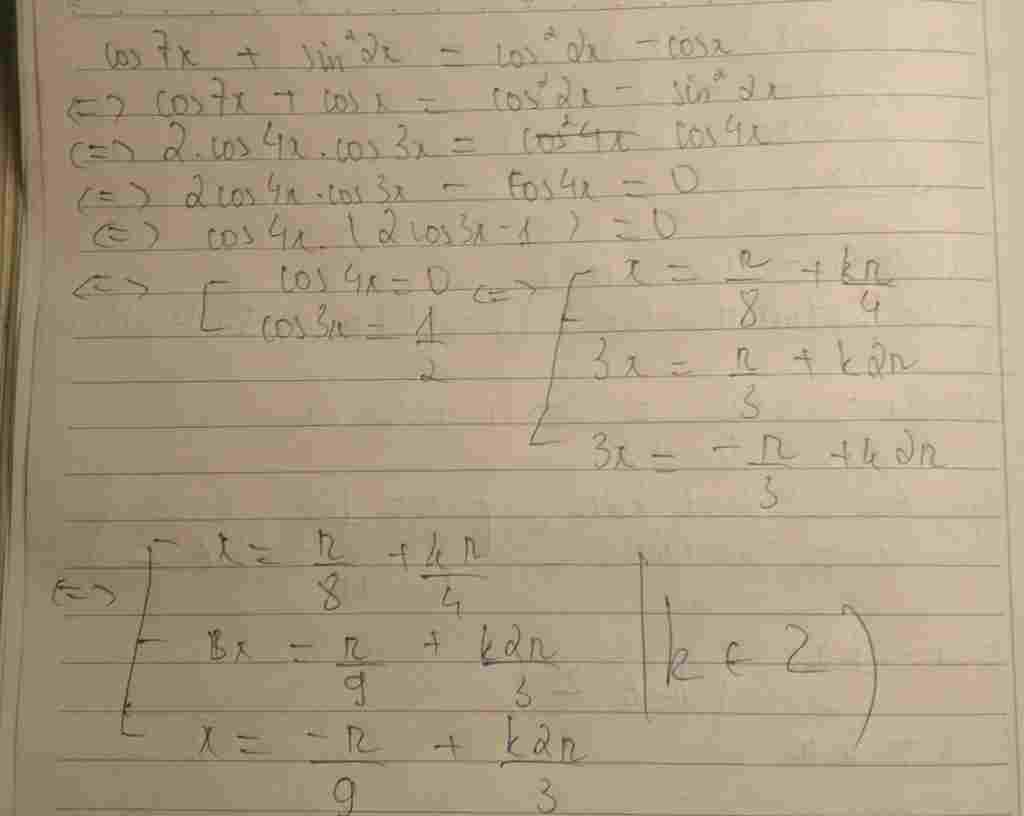 cos7x + sin²2x = cos²2x - cosx
<=> cos7x + cosx = cos²2x - sin²2x
<=> 2.cos4x.cos3x = cos²4x cos4x
<=> 2cos4x.cos3x - cos4x = 0
<=> cos4x.(2cos3x-1) = 0
<=> [ cos4x = 0 <=> [ x = π/8 + kπ/4
cos3x = 1/2
3x = π/3 + k2π
3x = -π/3 + k2π
<=> [ x = π/8 + kπ/4
x = π/9 + k2π/3 | k ∈ Z )
x = -π/9 + k2π/3